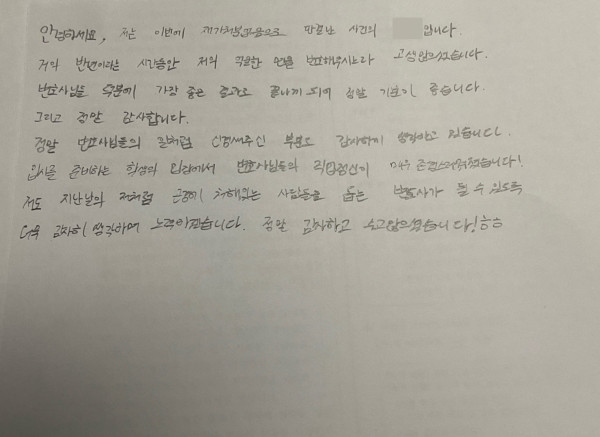 안녕하세요, 저는 이번에 판결난 사건의 입니다.
거의 반년이라는 시간동안 저의 억울한 면을 변호해주시느라 고생많으셨습니다.
변호사님들 덕분에 가장 좋은 결과로 끝나게 되어 정말 기분이 좋습니다.
그리고 정말 감사합니다.
정말 변호사님들의 일처럼 신경써주신 부분도 감사하게 생각하고 있습니다.
입시를 준비하는 학생의 입장에서 변호사님들의 직업정신이 매우 존경스러웠습니다!
저도 지난날의 저처럼 곤경에 처해있는 사람들을 돕는 변호사가 될 수 있도록
더욱 감사히 생각하며 노력하겠습니다. 정말 감사하고 수고많으셨습니다!ㅎㅎ